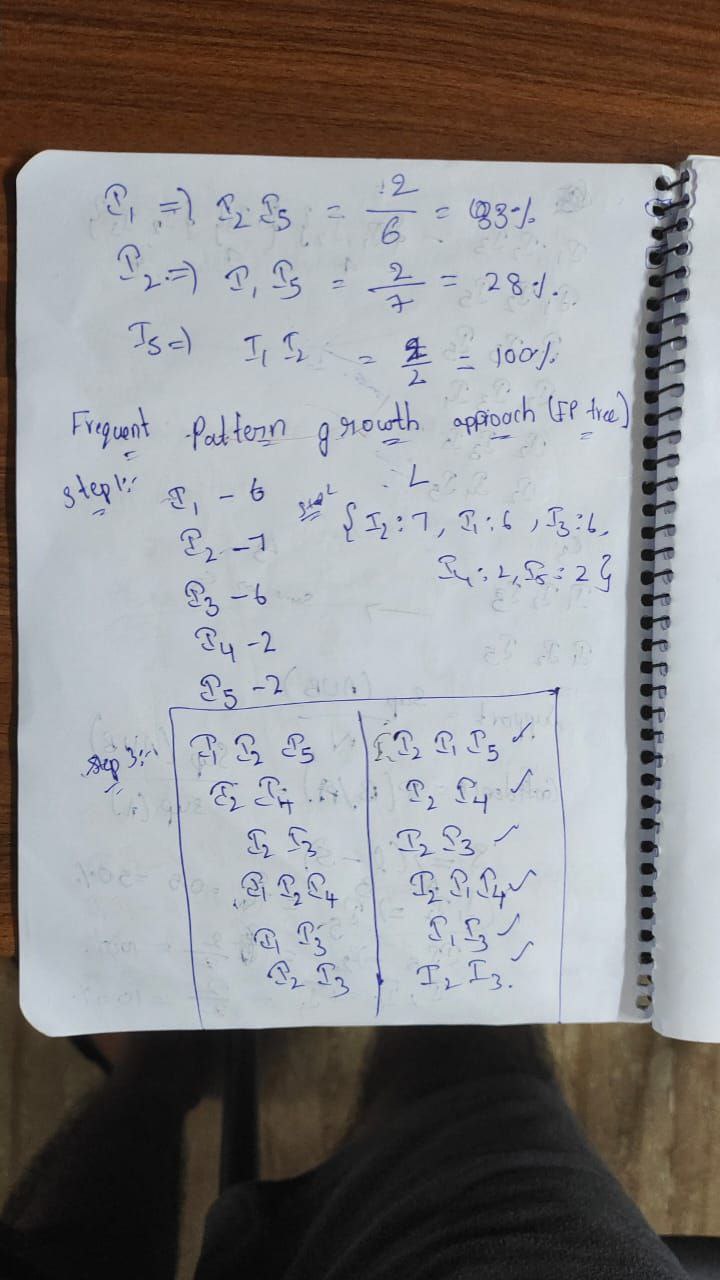 I₁ => I₂ I₅ = 2/6 = 33%
I₂ => I₁ I₅ = 2/7 = 28%.
I₅ => I₁ I₂ = 2/2 = 100%
Frequent Pattern growth approach (FP tree)
step 1:
I₁ - 6
I₂ - 7
I₃ - 6
I₄ - 2
I₅ - 2
step 2 L
{ I₂ : 7, I₁ : 6, I₃ : 6,
I₄ : 2, I₅ : 2 }
step 3:
I₁ I₂ I₅ I₂ I₁ I₅ ✓
I₂ I₄ I₂ I₄ ✓
I₂ I₃ I₂ I₃ ✓
I₁ I₂ I₄ I₂ I₁ I₄ ✓
I₁ I₃ I₁ I₃ ✓
I₂ I₃ I₂ I₃. ✓